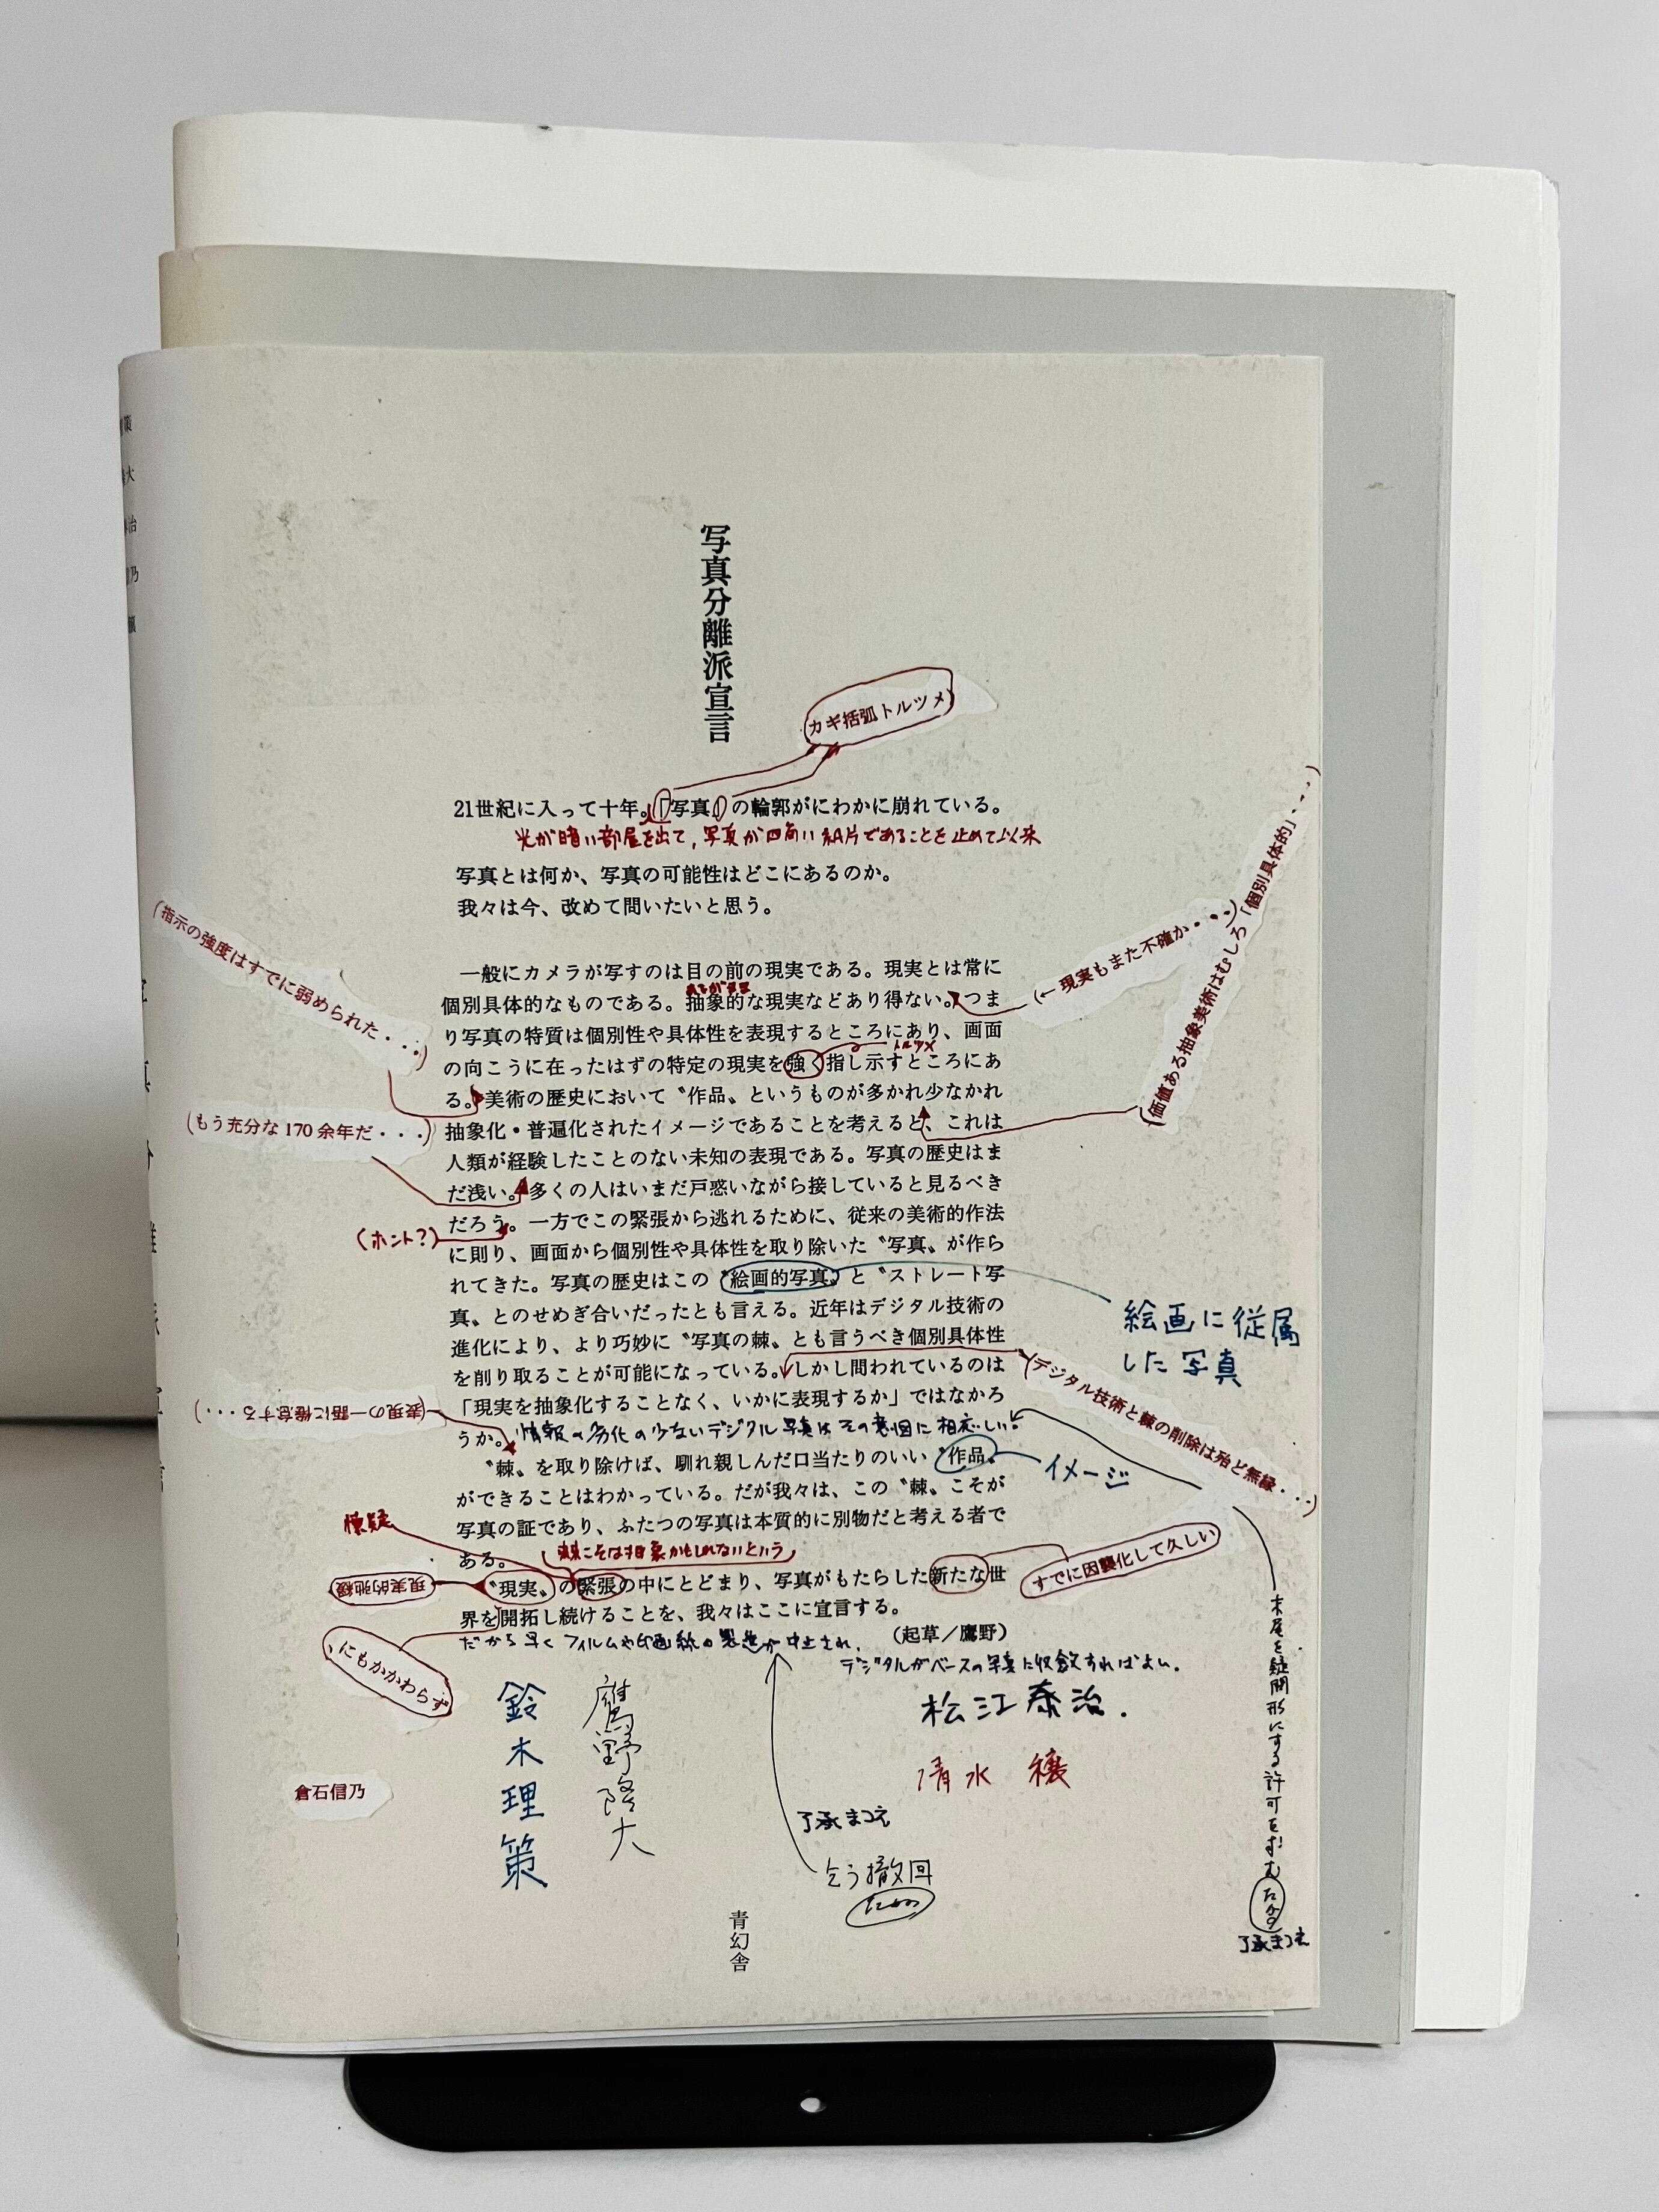 写真分離派宣言
カギ括弧トルツメ
21世紀に入って十年。「写真」の輪郭がにわかに崩れている。
光が暗い部屋を出て、写真が四角い紙片であることを止めて以来
写真とは何か、写真の可能性はどこにあるのか。
我々は今、改めて問いたいと思う。
一般にカメラが写すのは目の前の現実である。現実とは常に
個別具体的なものである。抽象的な現実などあり得ない。つま
り写真の特質は個別性や具体性を表現するところにあり、画面
トルツメ
の向こうに在ったはずの特定の現実を強く指し示すところにあ
る。美術の歴史において〝作品〟というものが多かれ少なかれ
抽象化・普遍化されたイメージであることを考えると、これは
人類が経験したことのない未知の表現である。写真の歴史はま
だ浅い。多くの人はいまだ戸惑いながら接していると見るべき
だろう。一方でこの緊張から逃れるために、従来の美術的作法
に則り、画面から個別性や具体性を取り除いた〝写真〟が作ら
れてきた。写真の歴史はこの〝絵画的写真〟と〝ストレート写
真〟とのせめぎ合いだったとも言える。近年はデジタル技術の
進化により、より巧妙に〝写真の棘〟とも言うべき個別具体性
を削り取ることが可能になっている。しかし問われているのは
「現実を抽象化することなく、いかに表現するか」ではなかろ
うか。
情報の劣化の少ないデジタル写真はその意図に相応しい。
〝棘〟を取り除けば、馴れ親しんだ口当たりのいい〝作品〟
ができることはわかっている。だが我々は、この〝棘〟こそが
写真の証であり、ふたつの写真は本質的に別物だと考える者で
ある。
〝現実〟の緊張の中にとどまり、写真がもたらした新たな世
界を開拓し続けることを、我々はここに宣言する。
(起草/鷹野)
だから早くフィルムや印画紙の製造が中止され、
デジタルがベースの写真に収斂すればよい。
(指示の強度はすでに弱められた・・・)
(もう充分な170余年だ・・・)
(ホント?)
(表現の一語に倦怠する・・・)
懐疑
現実的弛緩
、にもかかわらず
(←現実もまた不確か・・・)
(価値ある抽象美術はむしろ「個別具体的」・・・)
絵画に従属
した写真
(デジタル技術と棘の削除は殆ど無縁・・・)
イメージ
すでに因襲化して久しい
末尾を疑問形にする許可を求む
たかの
了承まつえ
鈴木理策
鷹野隆大
松江泰治.
清水 穣
倉石信乃
了承まつえ
乞う撤回
たかの
青幻舎